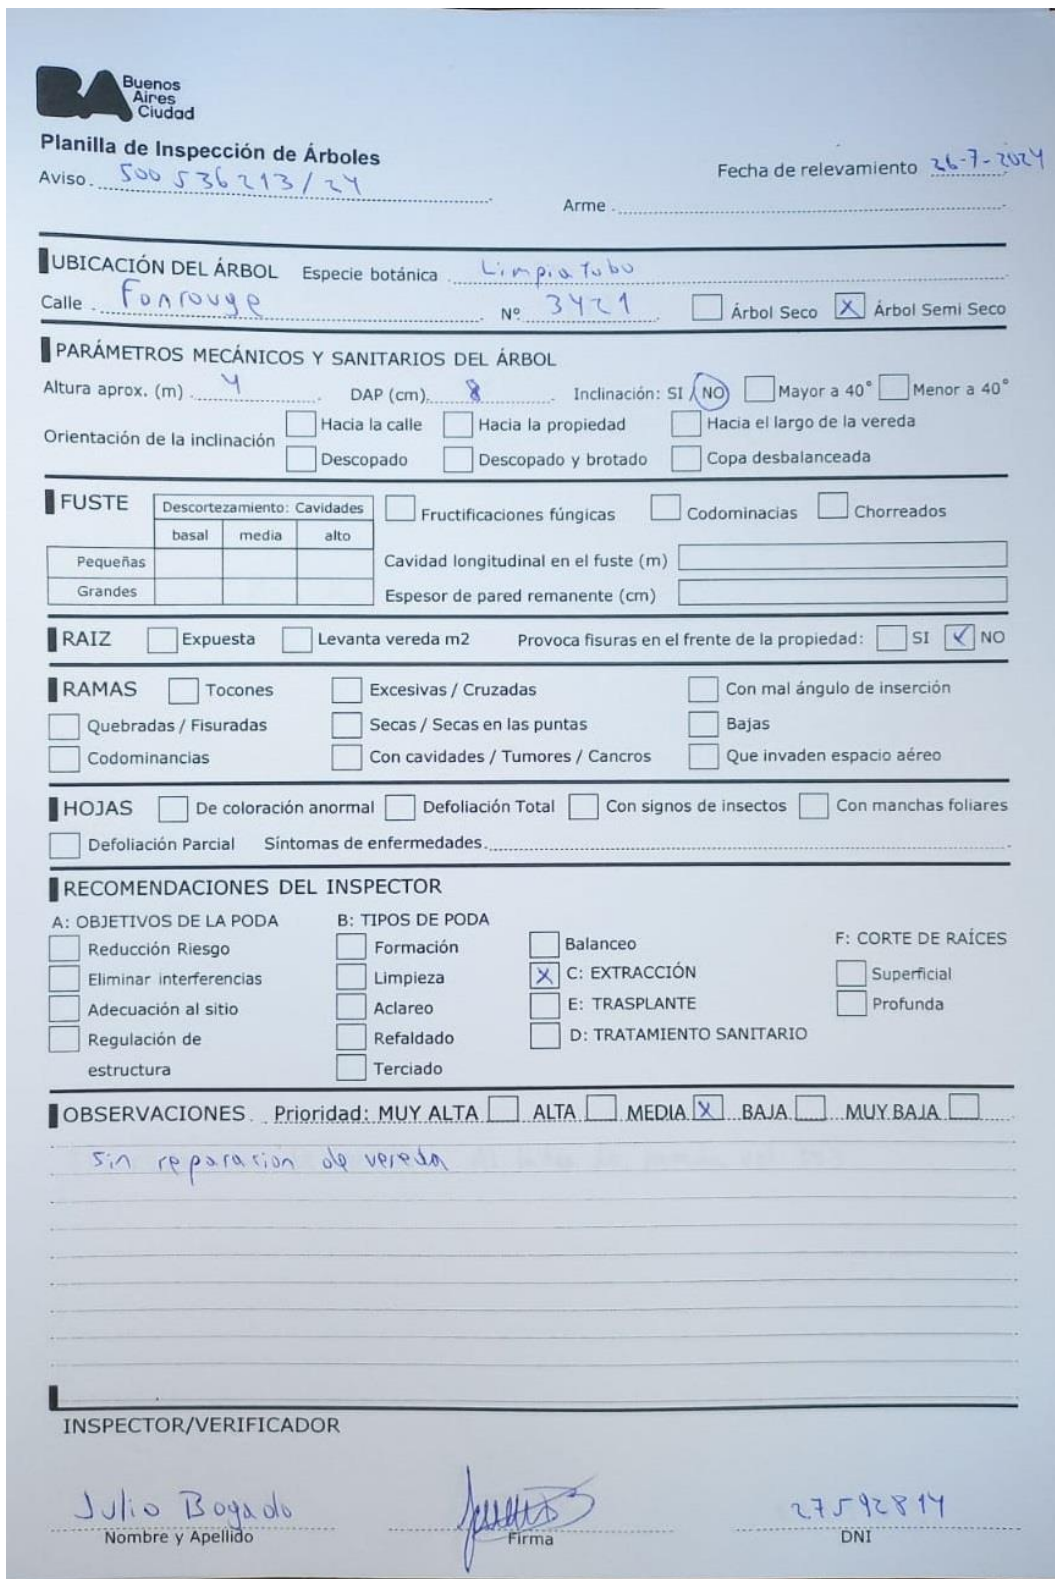 BA Buenos Aires Ciudad
Planilla de Inspección de Árboles
Aviso 500536213/24
Fecha de relevamiento 26-7-2024
Arme
UBICACIÓN DEL ÁRBOL Especie botánica Limpia tubo
Calle Fonrouge Nº 3421 Árbol Seco X Árbol Semi Seco
PARÁMETROS MECÁNICOS Y SANITARIOS DEL ÁRBOL
Altura aprox. (m) 4 DAP (cm) 8 Inclinación: SI / NO Mayor a 40° Menor a 40°
Orientación de la inclinación Hacia la calle Hacia la propiedad Hacia el largo de la vereda
Descopado Descopado y brotado Copa desbalanceada
FUSTE Descortezamiento: Cavidades Fructificaciones fúngicas Codominacias Chorreados
basal media alto
Pequeñas Cavidad longitudinal en el fuste (m)
Grandes Espesor de pared remanente (cm)
RAIZ Expuesta Levanta vereda m2 Provoca fisuras en el frente de la propiedad: SI ✓ NO
RAMAS Tocones Excesivas / Cruzadas Con mal ángulo de inserción
Quebradas / Fisuradas Secas / Secas en las puntas Bajas
Codominancias Con cavidades / Tumores / Cancros Que invaden espacio aéreo
HOJAS De coloración anormal Defoliación Total Con signos de insectos Con manchas foliares
Defoliación Parcial Síntomas de enfermedades
RECOMENDACIONES DEL INSPECTOR
A: OBJETIVOS DE LA PODA B: TIPOS DE PODA F: CORTE DE RAÍCES
Reducción Riesgo Formación Balanceo
Eliminar interferencias Limpieza X C: EXTRACCIÓN Superficial
Adecuación al sitio Aclareo E: TRASPLANTE Profunda
Regulación de Refaldado D: TRATAMIENTO SANITARIO
estructura Terciado
OBSERVACIONES Prioridad: MUY ALTA ALTA MEDIA X BAJA MUY BAJA
sin reparacion de vereda
INSPECTOR/VERIFICADOR
Julio Bogado 27592814
Nombre y Apellido Firma DNI